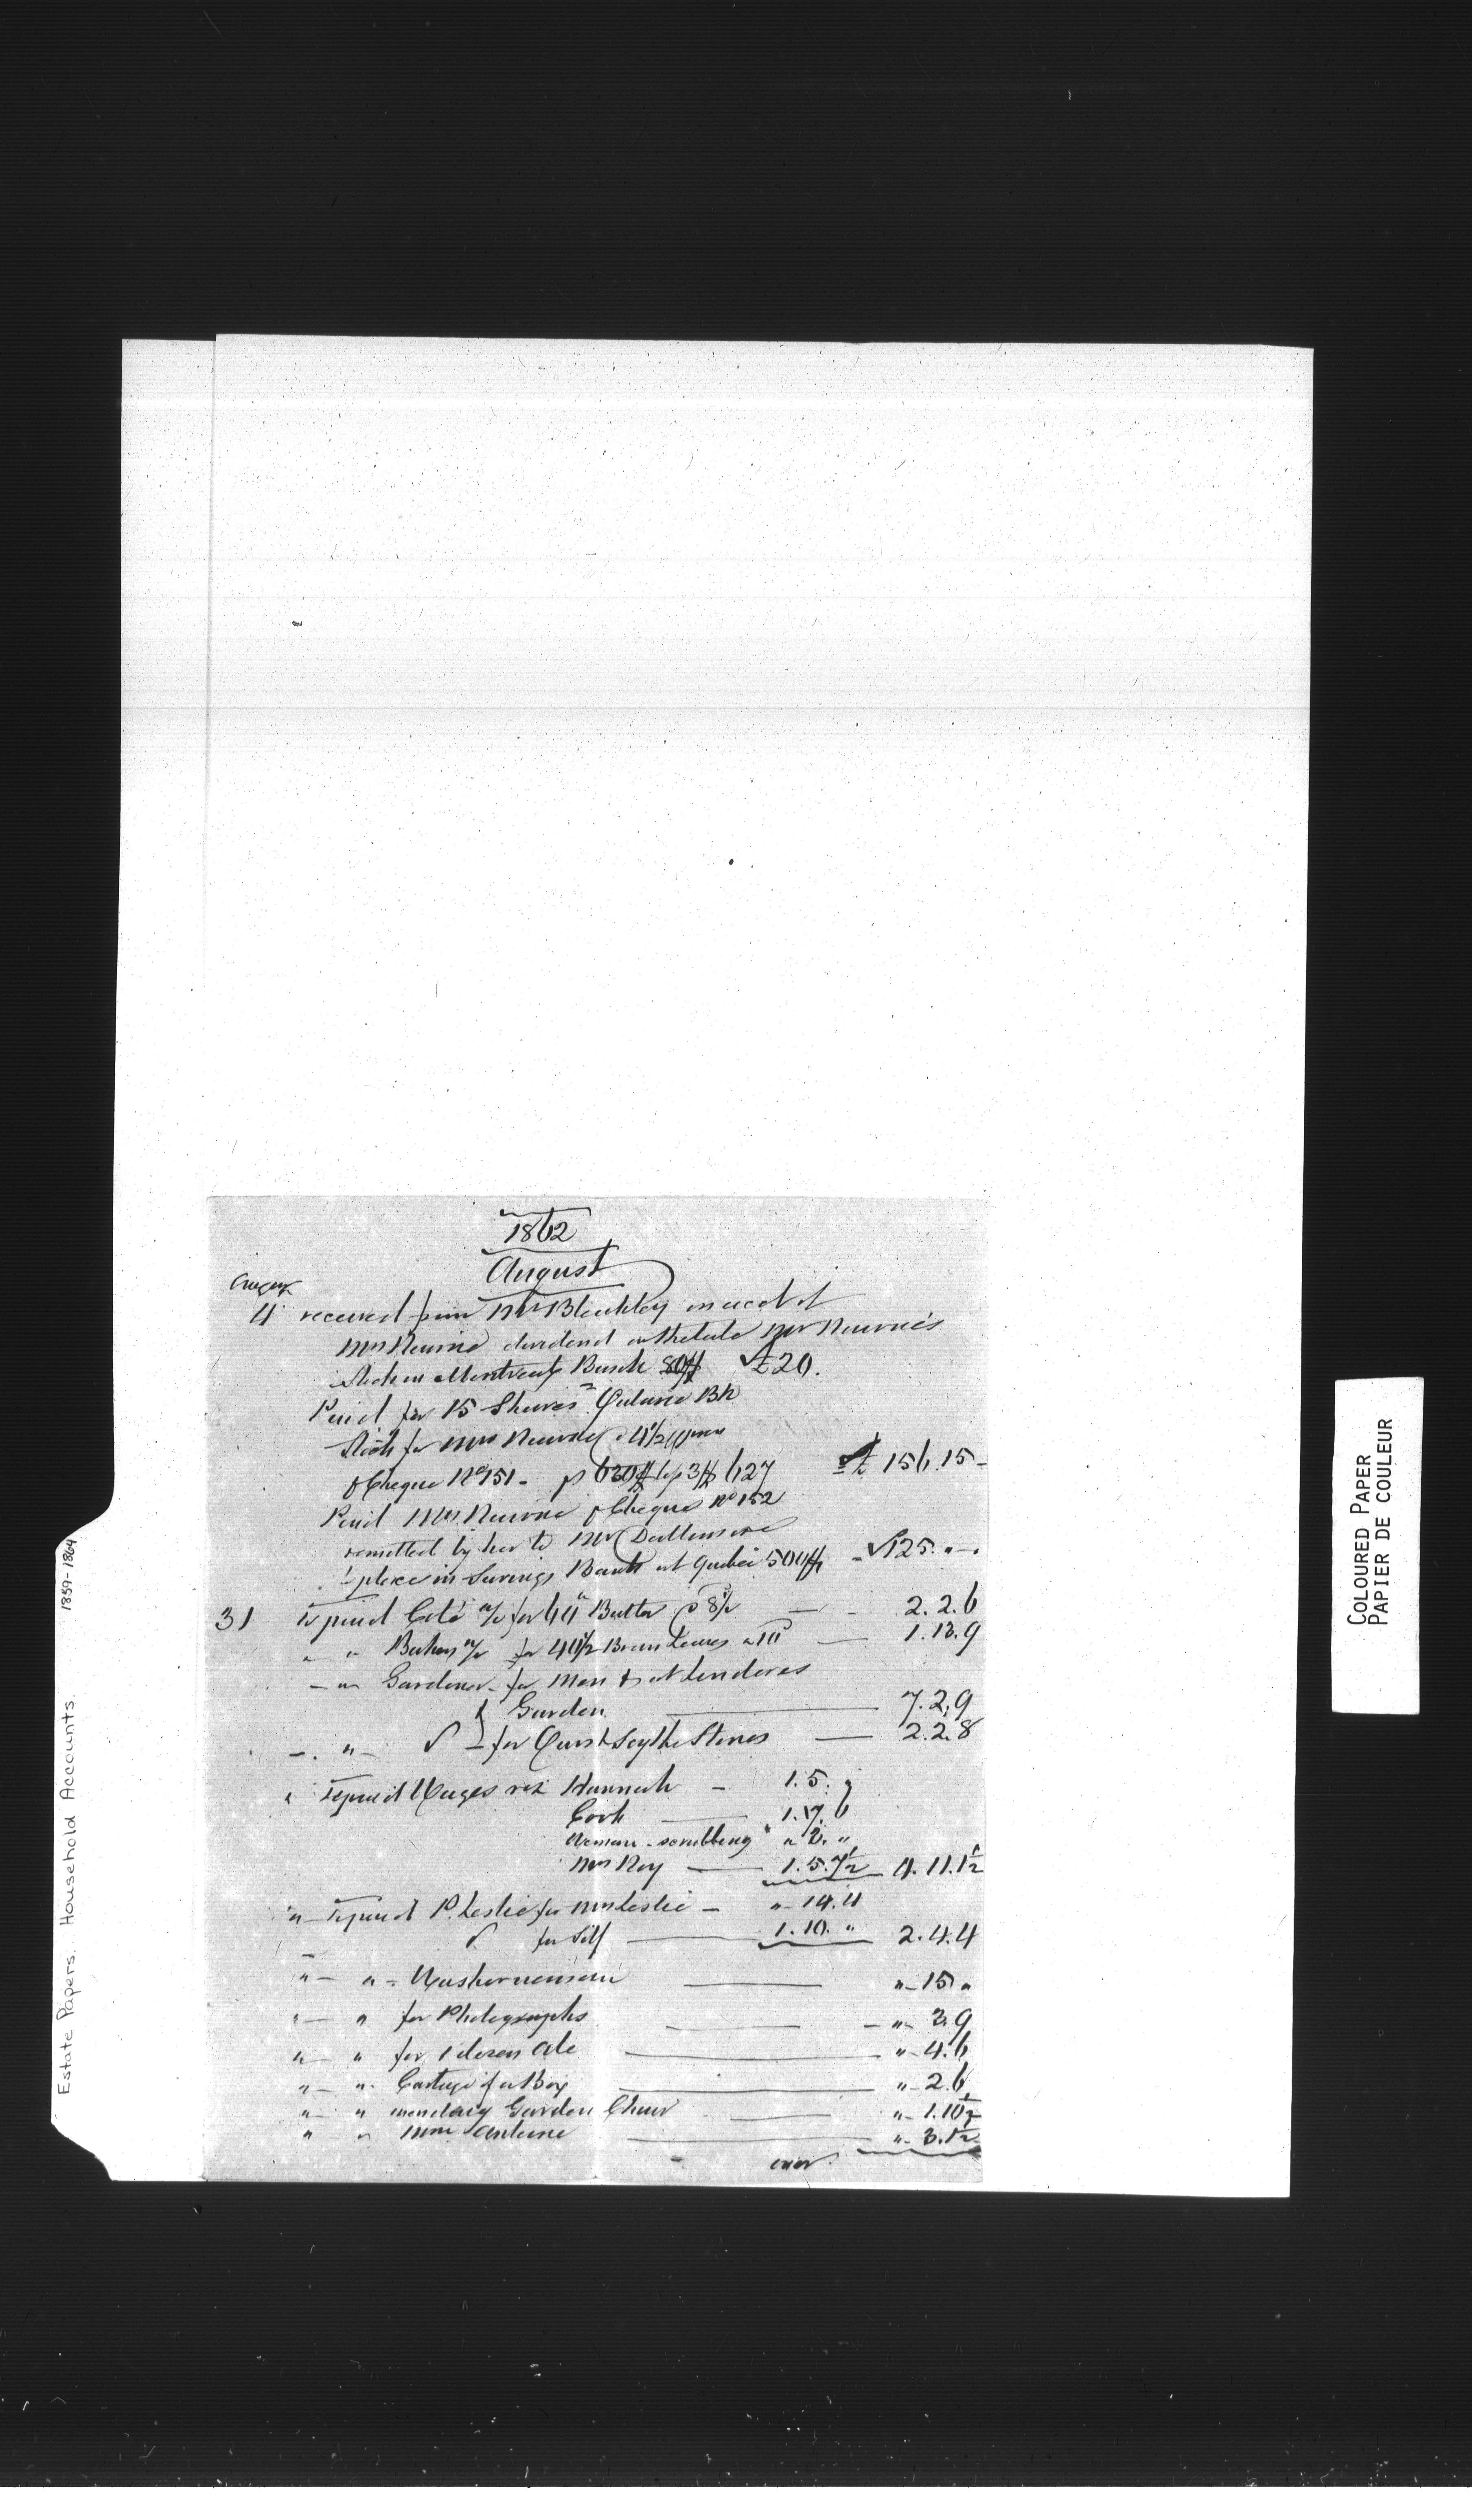 1862
August
August
4 received from Mr Bleakley on acct of
Mrs Nairne's dividend on the late Mr Nairne's
Stock in Montreal Bank 80$ £20.
Paid for 15 Shares Quebec Bk
Stock for Mrs Nairne 4½
Cheque No 151 - 630$ 3$ 627 £156.15-
Paid Mrs Nairne Cheque No 152
remitted by her to Mr
place in Savings Bank at Quebec 500$ - 125 " - .
31 To paid Coté a/c for 60lb Butter @ 8½ — - 2.2.6
" " Bakery a/c for 40½ Brown Loaves a 10d — 1.13.9
- " Gardener - for Men & attendance
Garden — 7.2.9
- . " - for Scythe Stones — 2.2.8
" To paid Wages viz Hannah - 1.5.
Cook — 1.17.6
Woman - scrubbing " " 3. "
Mrs Roy — 1.5.7½ 4.11.1½
" - To paid P. Leslie for Mrs Leslie - " 14.4
for Self — 1.10. " 2.4.4
" - " - Washerwoman — " - 15 "
" - " for Photographs — - " - 3.9
" - " for 1 dozen Ale — " - 4.6
" - " - Cartage of a Box — " - 2.6
" - " mending Garden Chair — " - 1.10½
" " Mme Antoine — " - 3.1½
- over.
Estate Papers. Household Accounts 1859-1864
COLOURED PAPER
PAPIER DE COULEUR